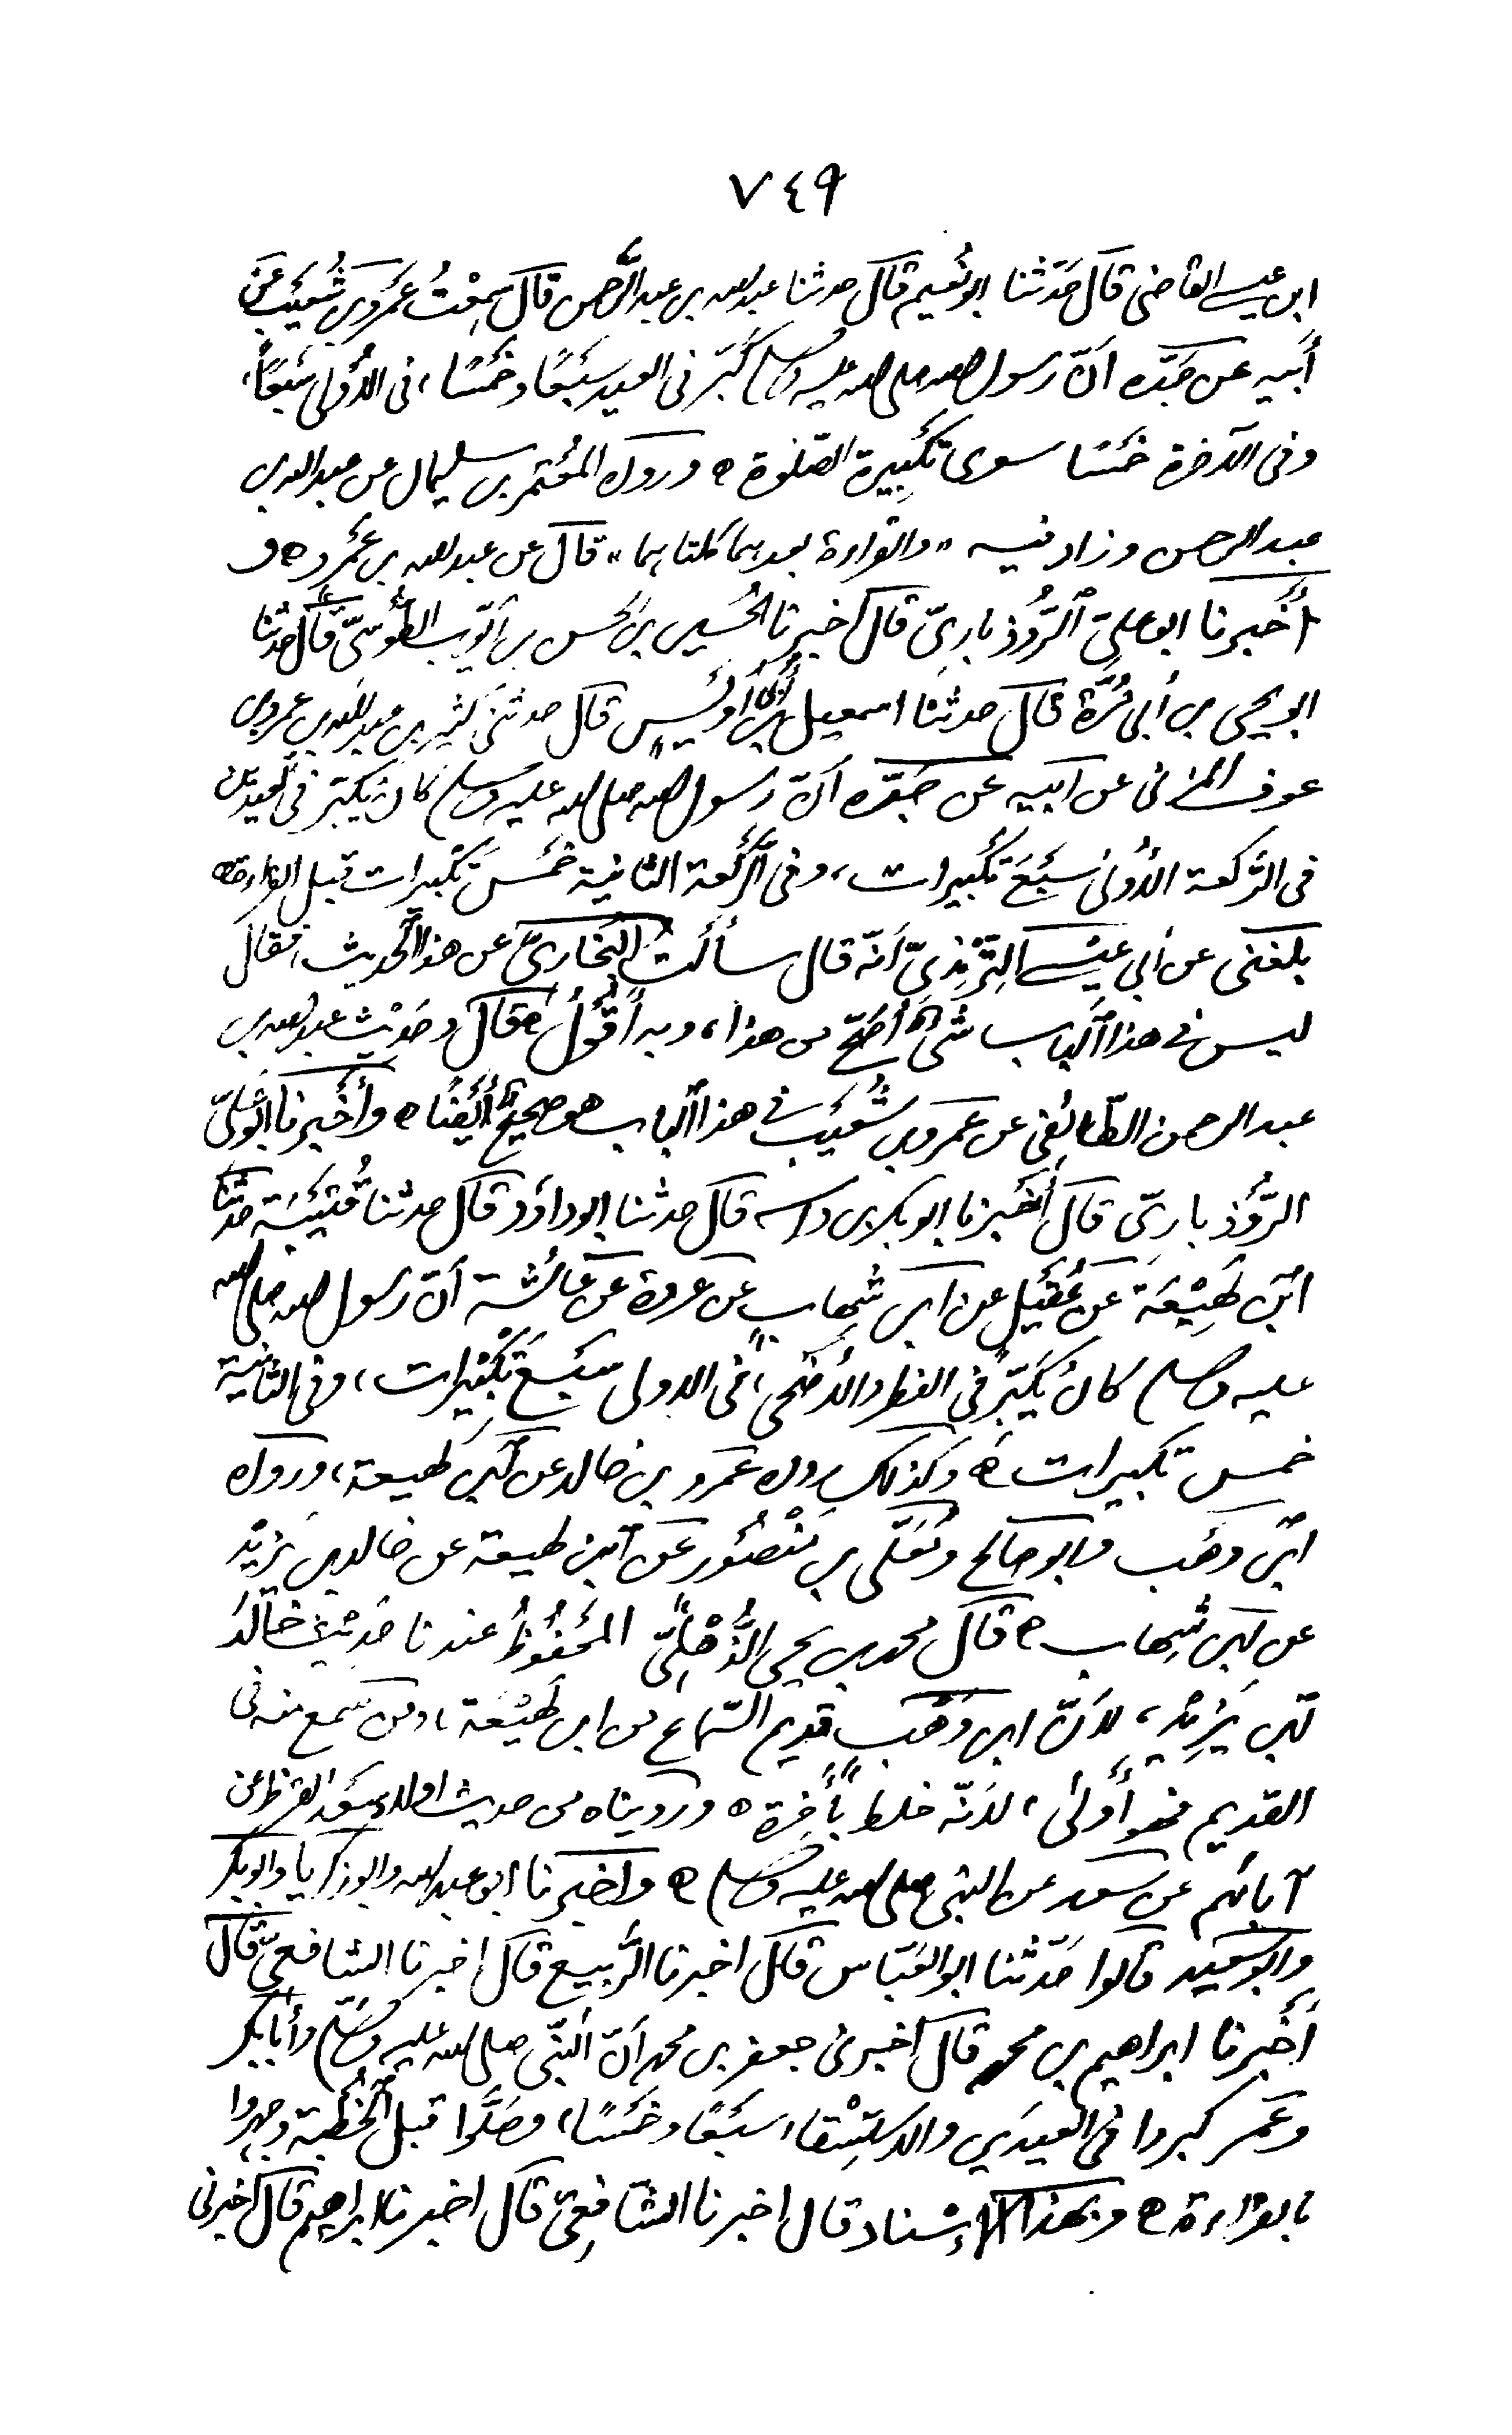 ٧٤٩
ابن عيسى القاضي قال حَدّثنا ابو نُعَيم قال حدثنا عبد الله بن عبد الرَّحمن قال سَمِعْتُ عَمْرو بن شُعَيْب عَن
أَبيه عن جَدّه أنّ رسول الله صلى الله عليه وسلم كَبَّر في العيد سَبْعًا وخَمْسًا، في الأُولى سَبْعًا،
وفي الآخرة خَمْسًا سوى تَكْبِيرة الصّلوة ه ورواه المُعْتَمر بن سليمان عن عبد الله بن
عبد الرحمن وزاد فيه "والقراءة بعدهما كلتاهما" قال عن عبد الله بن عَمْرو ه و
أَخْبرنا ابو علي الرُّوْذباريّ قال اخبرنا الحُسَين بن الحسن بن أيّوب الطُّوْسيّ قال حدثنا
ابو يحيى بن أبي مَسَرَّة قال حدثنا اسمعيل بن أبي أُوَيْسٍ قال حدثني كثير بن عبد الله بن عمرو بن
عوف المزني عن أبيه عن جَدّه أنّ رسول الله صلى الله عليه وسلم كان يُكبّر في العيدين
في الرّكعة الأُولى سَبْعَ تَكْبيرات، وفي الرَّكْعة الثانية خَمْسَ تَكْبيرات قبل القراءة ه
بلغني عن أبي عيْسى التِّرْمِذيّ أنّه قال سألتُ البُخاريّ عن هذا الحديث، فقال
ليس في هذا الباب شَيءٌ أَصَحّ من هذا، وبه أَقُوْلُ ه قال وحَديْث عبد الله بن
عبد الرحمن الطّائفي عن عمرو بن شُعَيْب في هذا الباب هو صحيحٌ أَيْضًا ه وأَخْبرنا ابو عليّ
الرُّوْذباريّ قال أَخْبرنا ابو بكر بن داسه قال حدثنا ابو داوُد قال حدثنا قُتَيْبَة حدّثنا
ابن لَهِيْعَة عَن عُقَيْل عن ابن شِهاب عن عروة عن عائشة أنّ رسول الله صلى الله
عليه وسلم كان يُكَبّر في الفطر والأَضْحى، في الاولى سَبْع تَكْبِيْرات، وفي الثانية
خمس تكبيرات ه وكذلك رواه عَمْرو بن خالد عن ابن لهيعة، ورواه
ابن وَهْب وابو صالح ومُعَلّى بن مَنْصُوْر عَن ابن لهيعة عن خالد بن يَزِيْد
عن ابن شِهاب ه قال محمد بن يحيى الذُّهْلِيّ المَحْفُوْظُ عندنا حَديْث خالد
بن يَزِيْد، لأنّ ابن وَهْب قديم السّماع من ابن لَهِيْعَة، ومن سَمع منه في
القديم فهو أَوْلى، لأنّه خلط بأَخرة ه ورُوّيناه من حديث اولاد سَعْد القرظ عن
آبائهم عن سعد عن النبي صلى الله عليه وسلم ه وأخبرنا ابو عبد الله وابو زكريا وابو بكر
وابو سَعيد قالوا حَدّثنا ابو العَبّاس قال اخبرنا الرَّبيع قال اخبرنا الشافعيّ قال
أَخْبرنا ابراهيم بن محمد قال أخبرني جعفر بن محمد أنّ النّبيّ صلى الله عليه وسلم وأبا بكر
وعُمَر كبروا في العيدَين والاستِسْقاء سَبْعًا وخَمْسًا، وصَلَّوا قبل الخُطْبة وجهروا
بالقراءة ه وبهذا الإسْناد قال اخبرنا الشّافِعيّ قال اخبرنا ابراهيم قال أخبرني